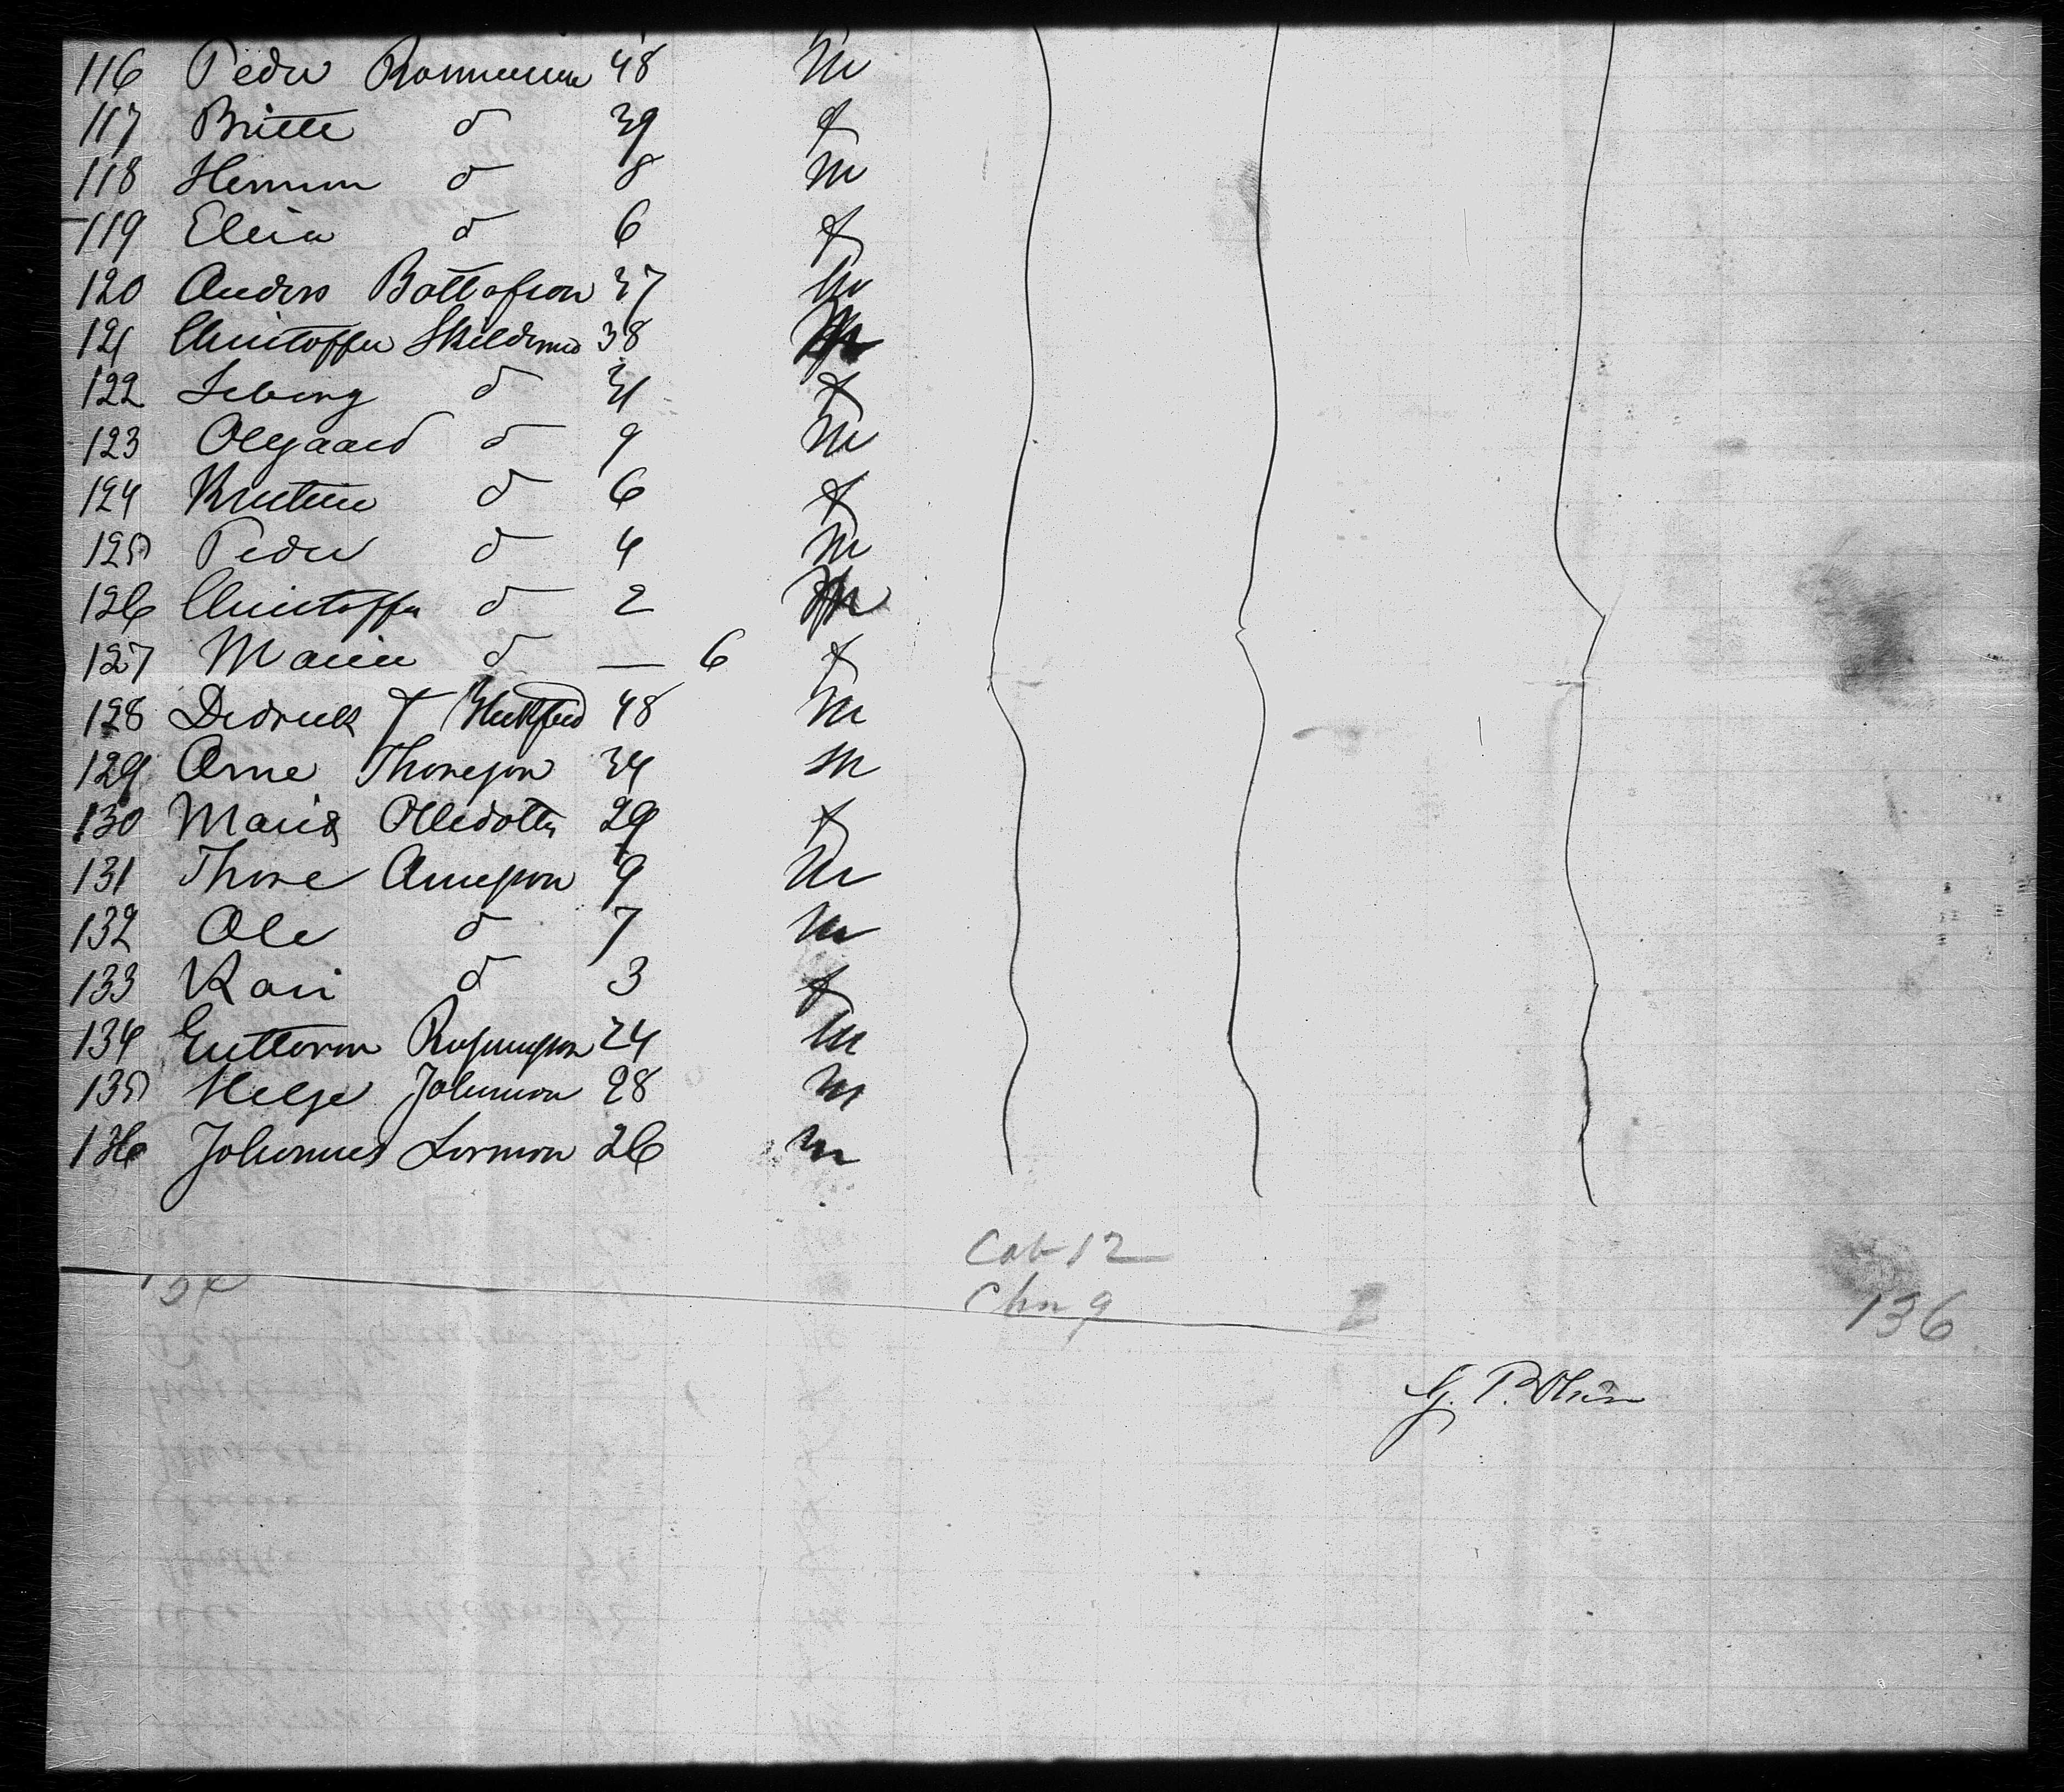 116 Peder Rasmussen 48 m
117 Britte d 39 f
118 Herman d 8 m
119 Elina d 6 f
120 Anders Bottolfson 37 m
121 Christoffer 38 m
122 d 31 f
123 Olegaard d 9 m
124 Kristine d 6 f
125 Peder d 4 m
126 Christoffer d 2 m
127 Marie d — 6 f
128 Didrick T 48 m
129 Arne Thoreson 34 m
130 Maria Olledotter 29 f
131 Thore Arneson 9 m
132 Ole d 7 m
133 Kari d 3 f
134 Guttorm 24 m
135 Helge Johnson 28 m
136 Johannes Larson 26 m
Cab 12
Chn 9
136
G. P. Olsen